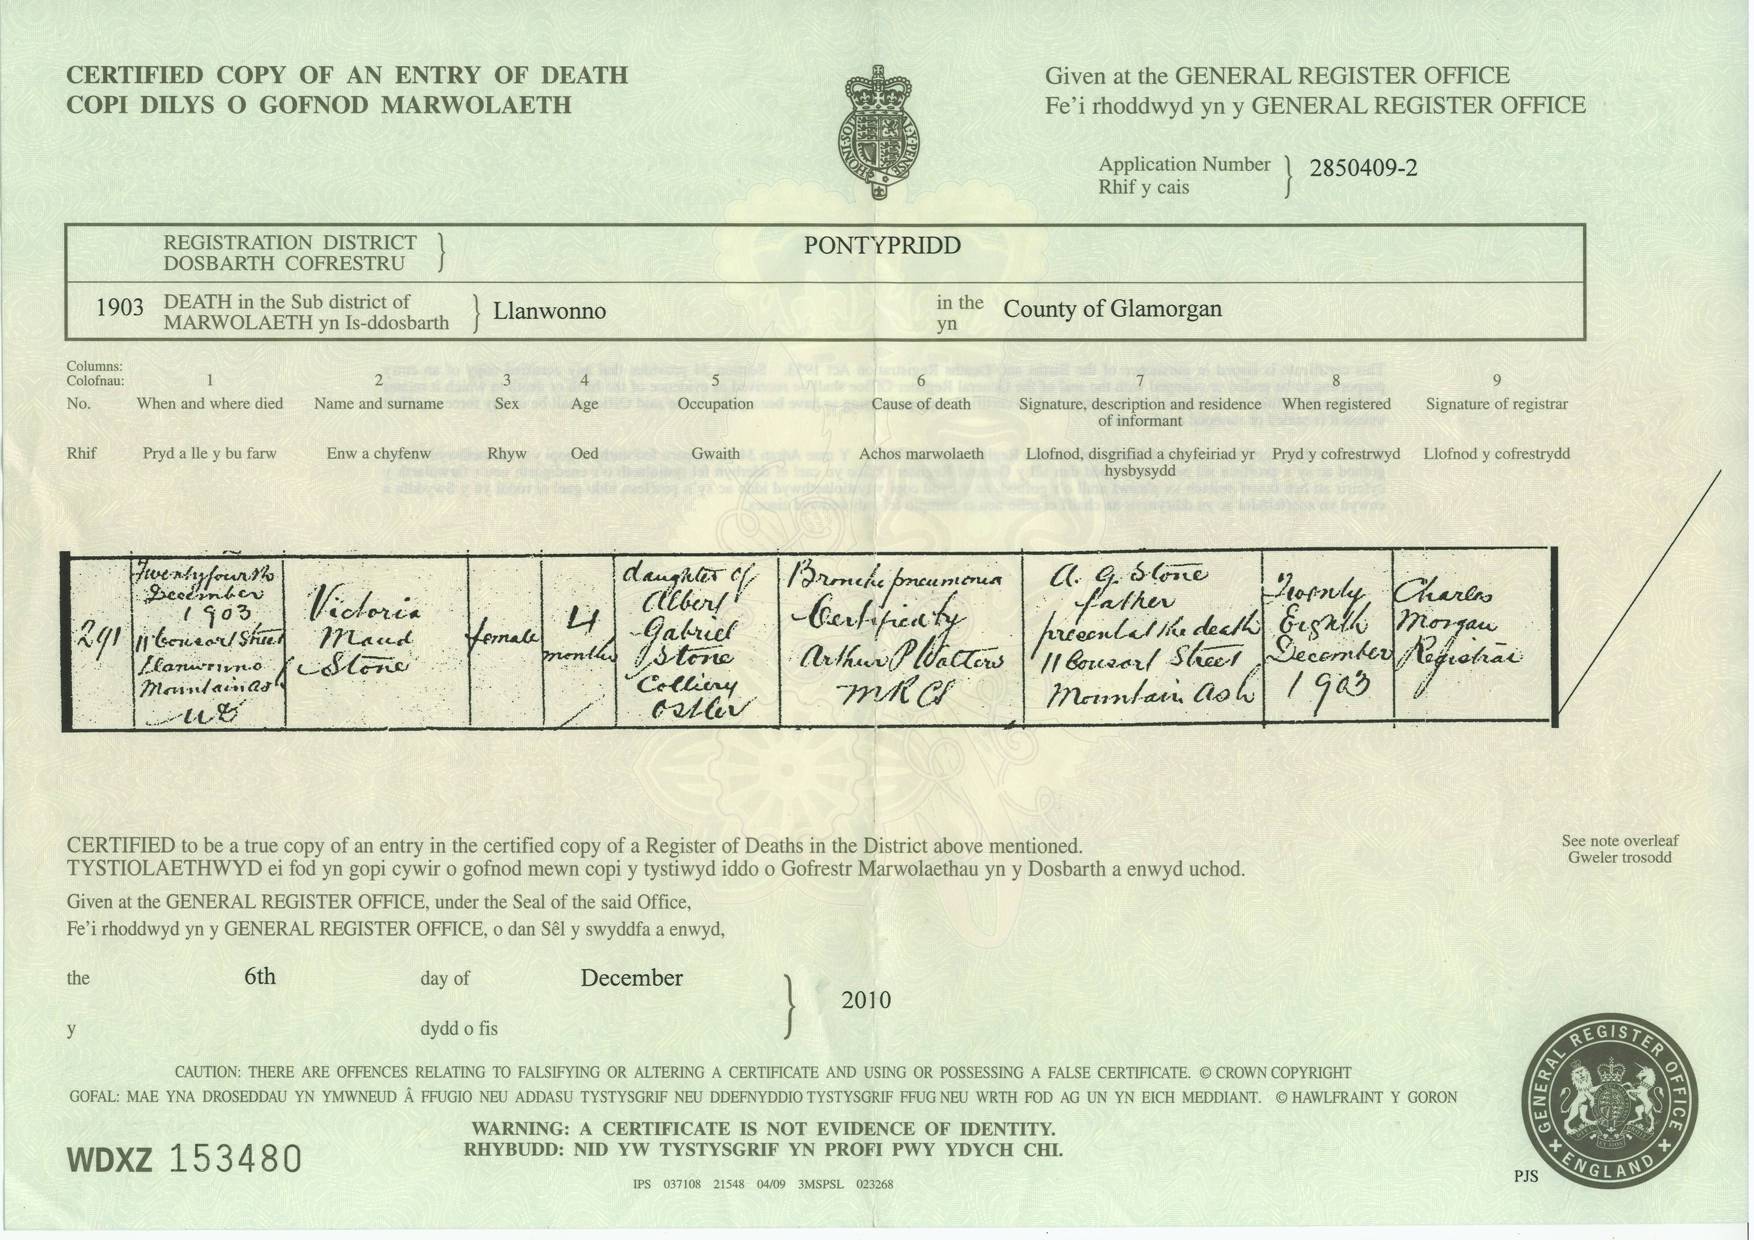 CERTIFIED COPY OF AN ENTRY OF DEATH
COPI DILYS O GOFNOD MARWOLAETH
Given at the GENERAL REGISTER OFFICE
Fe'i rhoddwyd yn y GENERAL REGISTER OFFICE
Application Number
Rhif y cais
2850409-2
REGISTRATION DISTRICT
DOSBARTH COFRESTRU
PONTYPRIDD
1903
DEATH in the Sub district of
MARWOLAETH yn Is-ddosbarth
Llanwonno
in the
yn
County of Glamorgan
Columns:
Colofnau:
1 2 3 4 5 6 7 8 9
No.
When and where died
Name and surname
Sex
Age
Occupation
Cause of death
Signature, description and residence
of informant
When registered
Signature of registrar
Rhif
Pryd a lle y bu farw
Enw a chyfenw
Rhyw
Oed
Gwaith
Achos marwolaeth
Llofnod, disgrifiad a chyfeiriad yr
hysbysydd
Pryd y cofrestrwyd
Llofnod y cofrestrydd
291
Twentyfourth
December
1903
11 Consort Street
Llanwonno
Mountain Ash
Victoria
Maud
Stone
female
4
months
daughter of
Albert
Gabriel
Stone
Colliery
Ostler
Broncho pneumonia
Certified by
Arthur P Watters
MRCS
A. G. Stone
father
present at the death
11 Consort Street
Mountain Ash
Twenty
Eighth
December
1903
Charles
Morgan
Registrar
CERTIFIED to be a true copy of an entry in the certified copy of a Register of Deaths in the District above mentioned.
TYSTIOLAETHWYD ei fod yn gopi cywir o gofnod mewn copi y tystiwyd iddo o Gofrestr Marwolaethau yn y Dosbarth a enwyd uchod.
See note overleaf
Gweler trosodd
Given at the GENERAL REGISTER OFFICE, under the Seal of the said Office,
Fe'i rhoddwyd yn y GENERAL REGISTER OFFICE, o dan Sêl y swyddfa a enwyd,
the 6th day of December
2010
y dydd o fis
CAUTION: THERE ARE OFFENCES RELATING TO FALSIFYING OR ALTERING A CERTIFICATE AND USING OR POSSESSING A FALSE CERTIFICATE. © CROWN COPYRIGHT
GOFAL: MAE YNA DROSEDDAU YN YMWNEUD Â FFUGIO NEU ADDASU TYSTYSGRIF NEU DDEFNYDDIO TYSTYSGRIF FFUG NEU WRTH FOD AG UN YN EICH MEDDIANT. © HAWLFRAINT Y GORON
WARNING: A CERTIFICATE IS NOT EVIDENCE OF IDENTITY.
RHYBUDD: NID YW TYSTYSGRIF YN PROFI PWY YDYCH CHI.
WDXZ 153480
IPS 037108 21548 04/09 3MSPSL 023268
PJS
GENERAL REGISTER OFFICE
ENGLAND